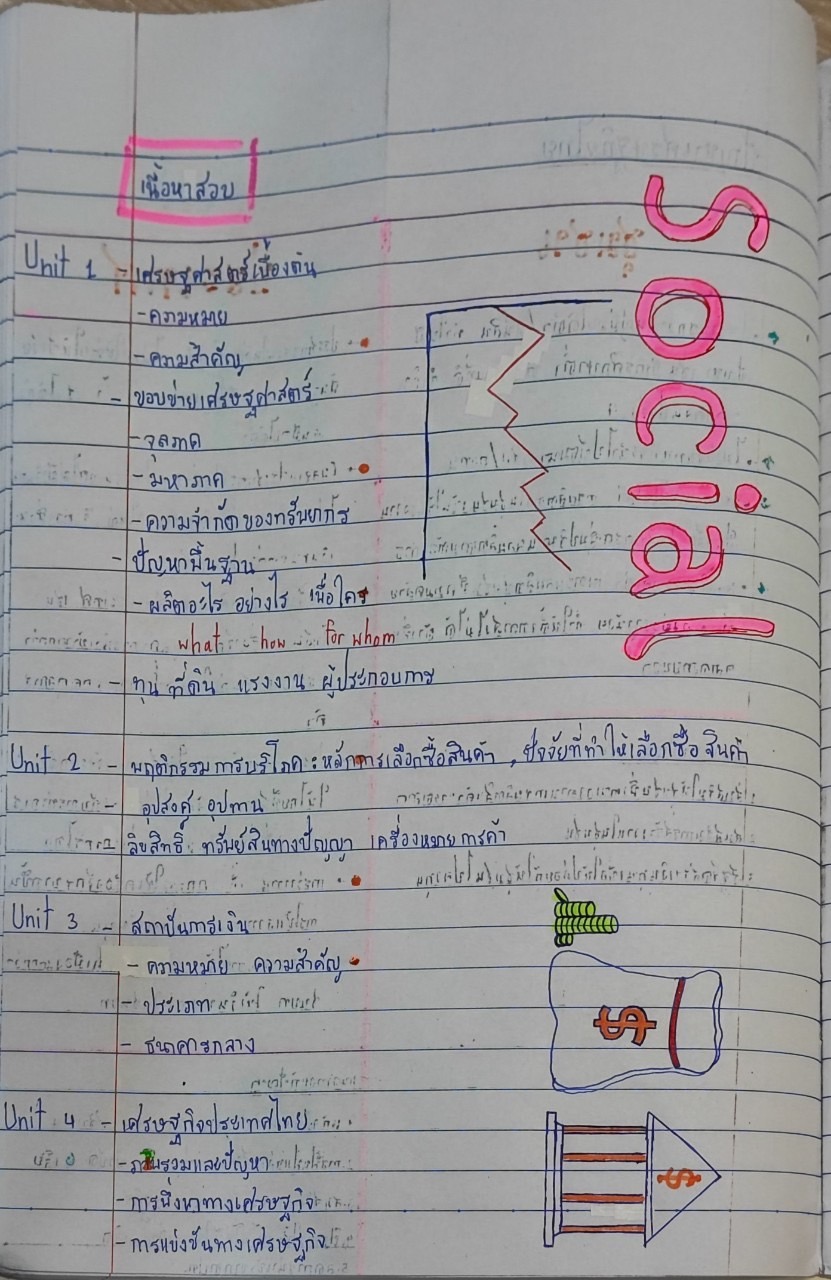 เนื้อหาสอบ
Social
Unit 1 - เศรษฐศาสตร์เบื้องต้น
- ความหมาย
- ความสำคัญ
- ขอบข่ายเศรษฐศาสตร์
- จุลภาค
- มหาภาค
- ความจำกัดของทรัพยากร
- ปัญหาพื้นฐาน
- ผลิตอะไร อย่างไร เพื่อใคร
what how for whom
- ทุน ที่ดิน แรงงาน ผู้ประกอบการ
Unit 2 - พฤติกรรมการบริโภค : หลักการเลือกซื้อสินค้า , ปัจจัยที่ทำให้เลือกซื้อสินค้า
- อุปสงค์ อุปทาน
- ลิขสิทธิ์ ทรัพย์สินทางปัญญา เครื่องหมายการค้า
Unit 3 - สถาบันการเงิน
- ความหมาย ความสำคัญ
- ประเภท
- ธนาคารกลาง
Unit 4 - เศรษฐกิจประเทศไทย
- ภาพรวมและปัญหา
- การพึ่งพาทางเศรษฐกิจ
- การแข่งขันทางเศรษฐกิจ
$
$